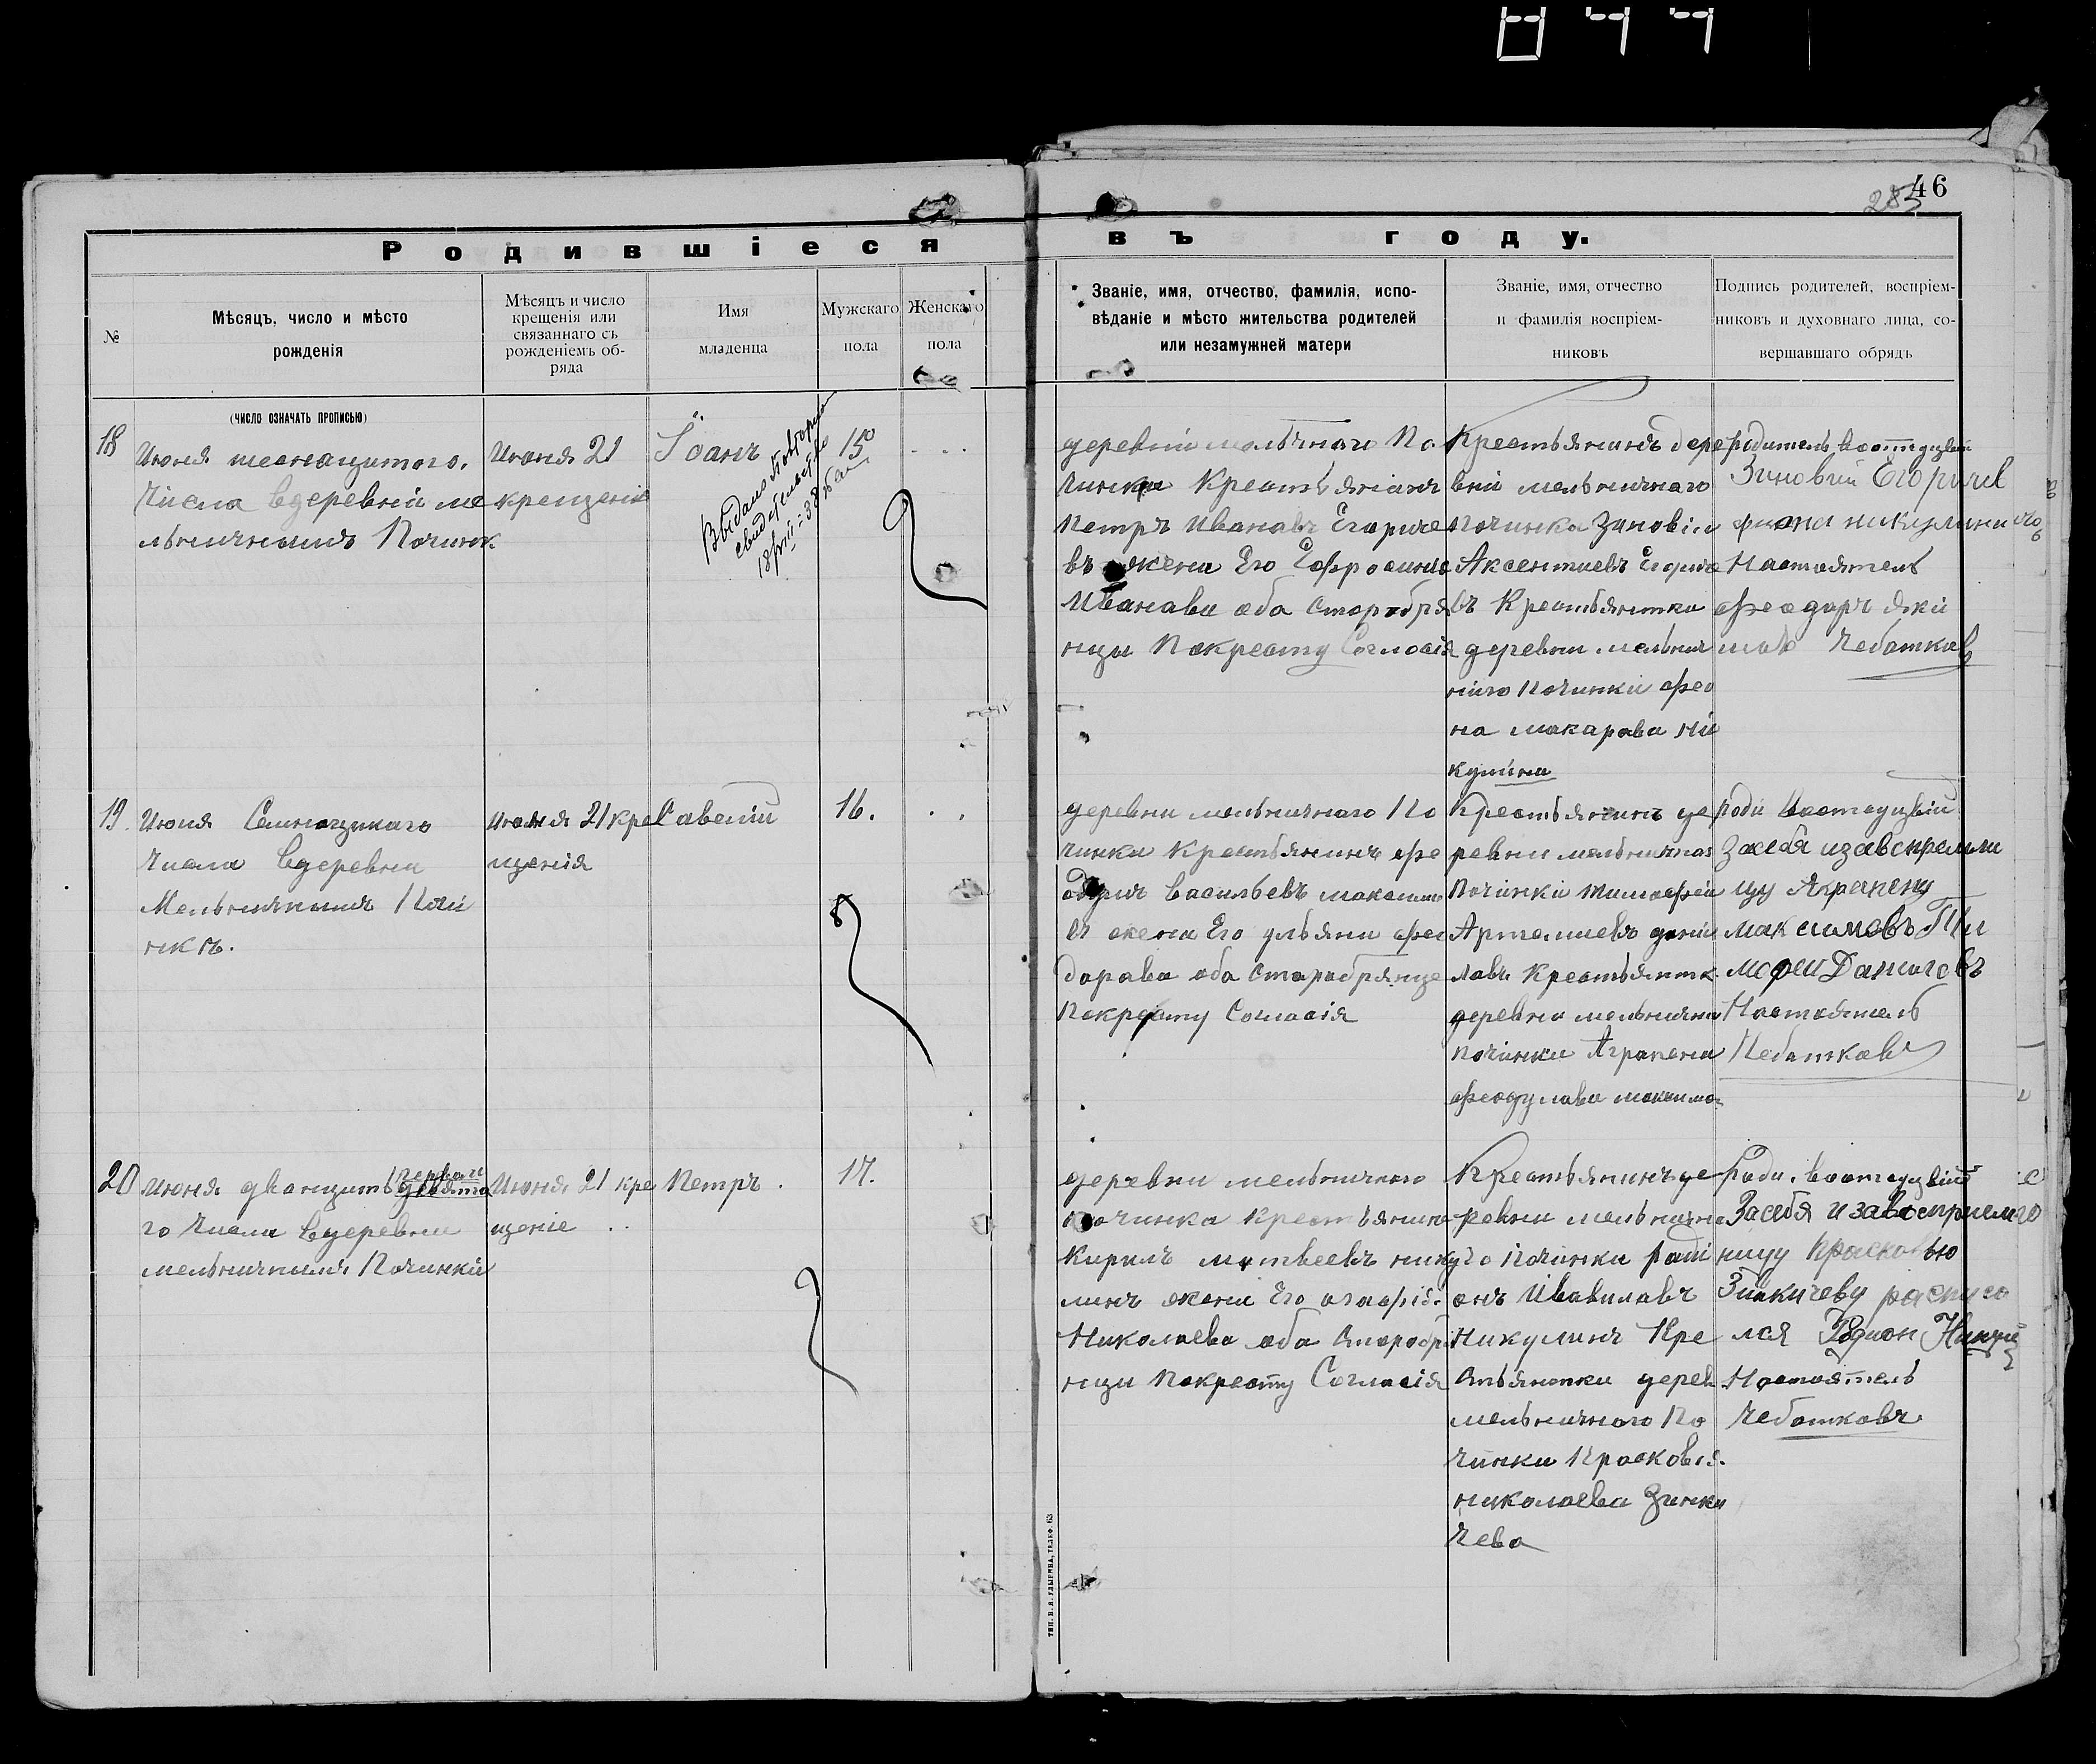 46
285
Родившіеся въ году.
№
Мѣсяцъ, число и мѣсто
рожденія
Мѣсяцъ и число
крещенія или
связаннаго съ
рожденіемъ об-
ряда
Имя
младенца
Мужскаго
пола
Женскаго
пола
Званіе, имя, отчество, фамилія, испо-
вѣданіе и мѣсто жительства родителей
или незамужней матери
Званіе, имя, отчество
и фамилія воспріем-
никовъ
Подпись родителей, воспріем-
никовъ и духовнаго лица, со-
вершавшаго обрядъ
(число означать прописью)
18
Июня шеснацатого.
Числа вдеревни ме
льничнымъ Починк
Июня 21
крещеніе
Іоанъ
Выдано повторно
свидетельство
15
деревни мельничного По
чинка Крестьянинъ
Петръ Иванавъ Егориче
въ жена Его Ефросинья
Иванава оба старобря
нцы Покресту Согласія
Крестьянинъ дере
вни мельничнаго
Починка Зиновіи
Аксентиевъ Егориче
въ Крестьянтка
деревни мельнич
ного Починки фео
на макарава Ни
кулина
Зиновий Егоричев
Настоятель
Чеботков
19.
Июня Семнацунаго
Числа вдеревни
Мельничнымъ Почи
нкъ.
Июня 21 кре
щенія
Савелій
16.
деревни мельничного По
чинка Крестьянинъ фе
одоръ васильевъ максимо
въ жена Его ульяни фео
дорава оба старобрянце
Покресту Согласія
Крестьянинъ де
ревни мельничнаго
Починки тимофеи
Артемиевъ дани
лавъ Крестьянтка
деревни мельнични
починки Аграпена
феодулава максимо
Засебя изавспремни
цу Акрапену
максимовъ Ти
мофеи Даниловъ
Настоятель
Чеботкавъ
20
Июня дванцить первагѡ
го Числа вдеревни
мельничнымъ Починки
Июня 21 кре
щеніе
Петръ.
17.
деревни мельничного
Починка крестьянинъ
Кирилъ матвеевъ нику
линъ жена Его агафія
Николаева оба старобря
нцы Покресту Согласія
Крестьянинъ де
ревни мельнично
го Починки Роди
онъ Ивавилавъ
Никулинъ Кре
стьянтки дерев
мельничного По
чинки Прасковія
николаева Зинки
чева
Засебя и завосприемго
ницу Прасковью
Зинкичеву расписа
лся Родион
Настоятель
Чеботковъ
тип. в. л. улыбина, телеф. 63